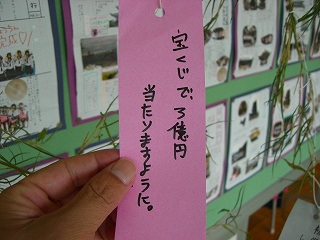 宝くじで、3億円
当たりますように。